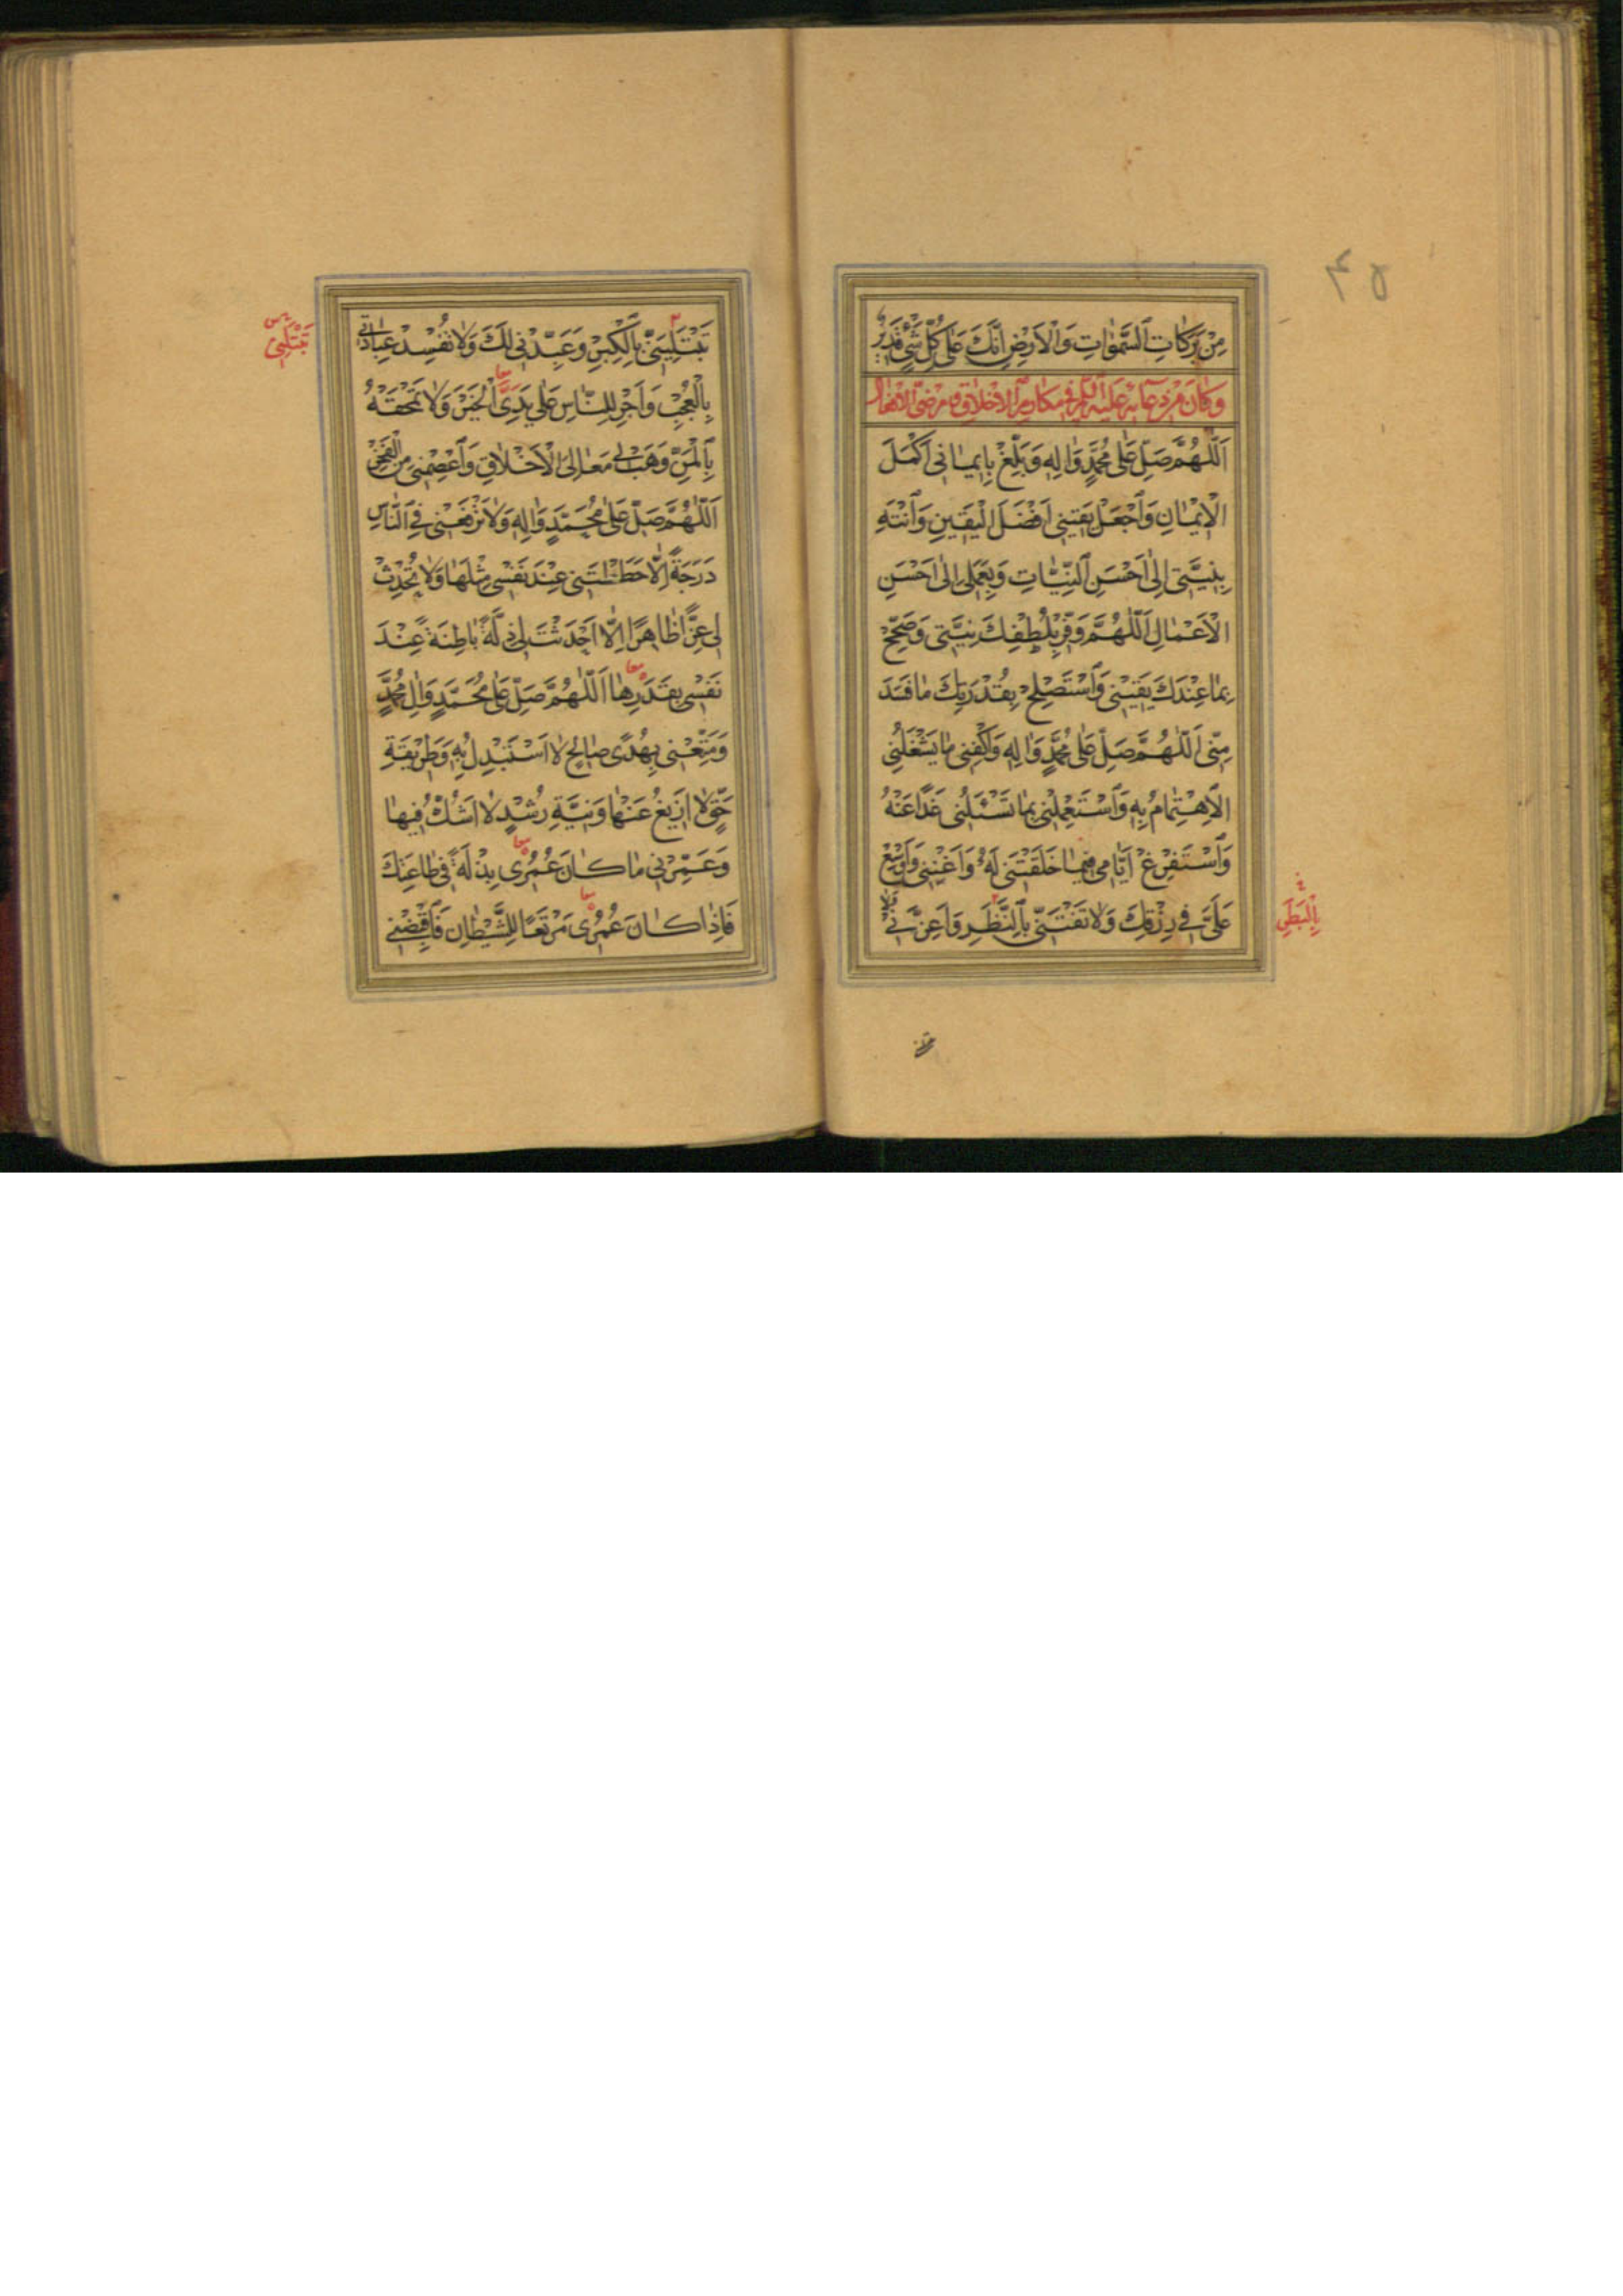 ۴۵
مِنْ بَرَكَاتِ السَّمٰوَاتِ وَالْاَرْضِ اِنَّكَ عَلٰى كُلِّ شَيْءٍ قَدِيرٌ
وَكَانَ مِنْ دُعَائِهِ عَلَيْهِ السَّلَمُ فِي مَكَارِمِ الْاَخْلَاقِ وَ مَرْضِيِّ الْاَفْعَالِ
اَللّٰهُمَّ صَلِّ عَلٰى مُحَمَّدٍ وَاٰلِهِ وَبَلِّغْ بِاِيمَانِي اَكْمَلَ
الْاِيْمَانِ وَاجْعَلْ يَقِينِي اَفْضَلَ الْيَقِينِ وَانْتَهِ
بِنِيَّتِي اِلٰى اَحْسَنِ النِّيَّاتِ وَبِعَمَلِي اِلٰى اَحْسَنِ
الْاَعْمَالِ اَللّٰهُمَّ وَفِّرْ بِلُطْفِكَ نِيَّتِي وَصَحِّحْ
بِمَا عِنْدَكَ يَقِيْنِي وَاسْتَصْلِحْ بِقُدْرَتِكَ مَا فَسَدَ
مِنِّي اَللّٰهُمَّ صَلِّ عَلٰى مُحَمَّدٍ وَاٰلِهِ وَاكْفِنِي مَا يَشْغَلُنِي
الْاِهْتِمَامُ بِهِ وَاسْتَعْمِلْنِي بِمَا تَسْئَلُنِي غَدًا عَنْهُ
وَاسْتَفْرِغْ اَيَّامِي فِيمَا خَلَقْتَنِي لَهُ وَاَغْنِنِي وَاَوْسِعْ
عَلَيَّ فِي رِزْقِكَ وَلَا تَفْتِنِّي بِالنَّظَرِ وَاَعِزَّنِي وَلَا
بِالْبَطَرِ
تَبْتَلِيَنِّي بِالْكِبْرِ وَعَبِّدْنِي لَكَ وَلَا تُفْسِدْ عِبَادَتِي
تَبْتَلِنِي
بِالْعُجْبِ وَاَجْرِ لِلنَّاسِ عَلٰى يَدِيَّ الْخَيْرَ وَلَا تَمْحَقْهُ
بِالْمَنِّ وَهَبْ لِي مَعَالِيَ الْاَخْلَاقِ وَاعْصِمْنِي مِنَ الْفَخْرِ
اَللّٰهُمَّ صَلِّ عَلٰى مُحَمَّدٍ وَاٰلِهِ وَلَا تَرْفَعْنِي فِي النَّاسِ
دَرَجَةً اِلَّا حَطَطْتَنِي عِنْدَ نَفْسِي مِثْلَهَا وَلَا تُحْدِثْ
لِي عِزًّا ظَاهِرًا اِلَّا اَحْدَثْتَ لِي ذِلَّةً بَاطِنَةً عِنْدَ
نَفْسِي بِقَدَرِهَا اَللّٰهُمَّ صَلِّ عَلٰى مُحَمَّدٍ وَاٰلِ مُحَمَّدٍ
وَمَتِّعْنِي بِهُدًى صَالِحٍ لَا اَسْتَبْدِلُ بِهِ وَطَرِيْقَةِ
حَقٍّ لَا اَزِيغُ عَنْهَا وَنِيَّةِ رُشْدٍ لَا اَشُكُّ فِيهَا
وَعَمِّرْنِي مَا كَانَ عُمُرِي بِذْلَةً فِي طَاعَتِكَ
فَاِذَا كَانَ عُمُرِي مَرْتَعًا لِلشَّيْطَانِ فَاقْبِضْنِي